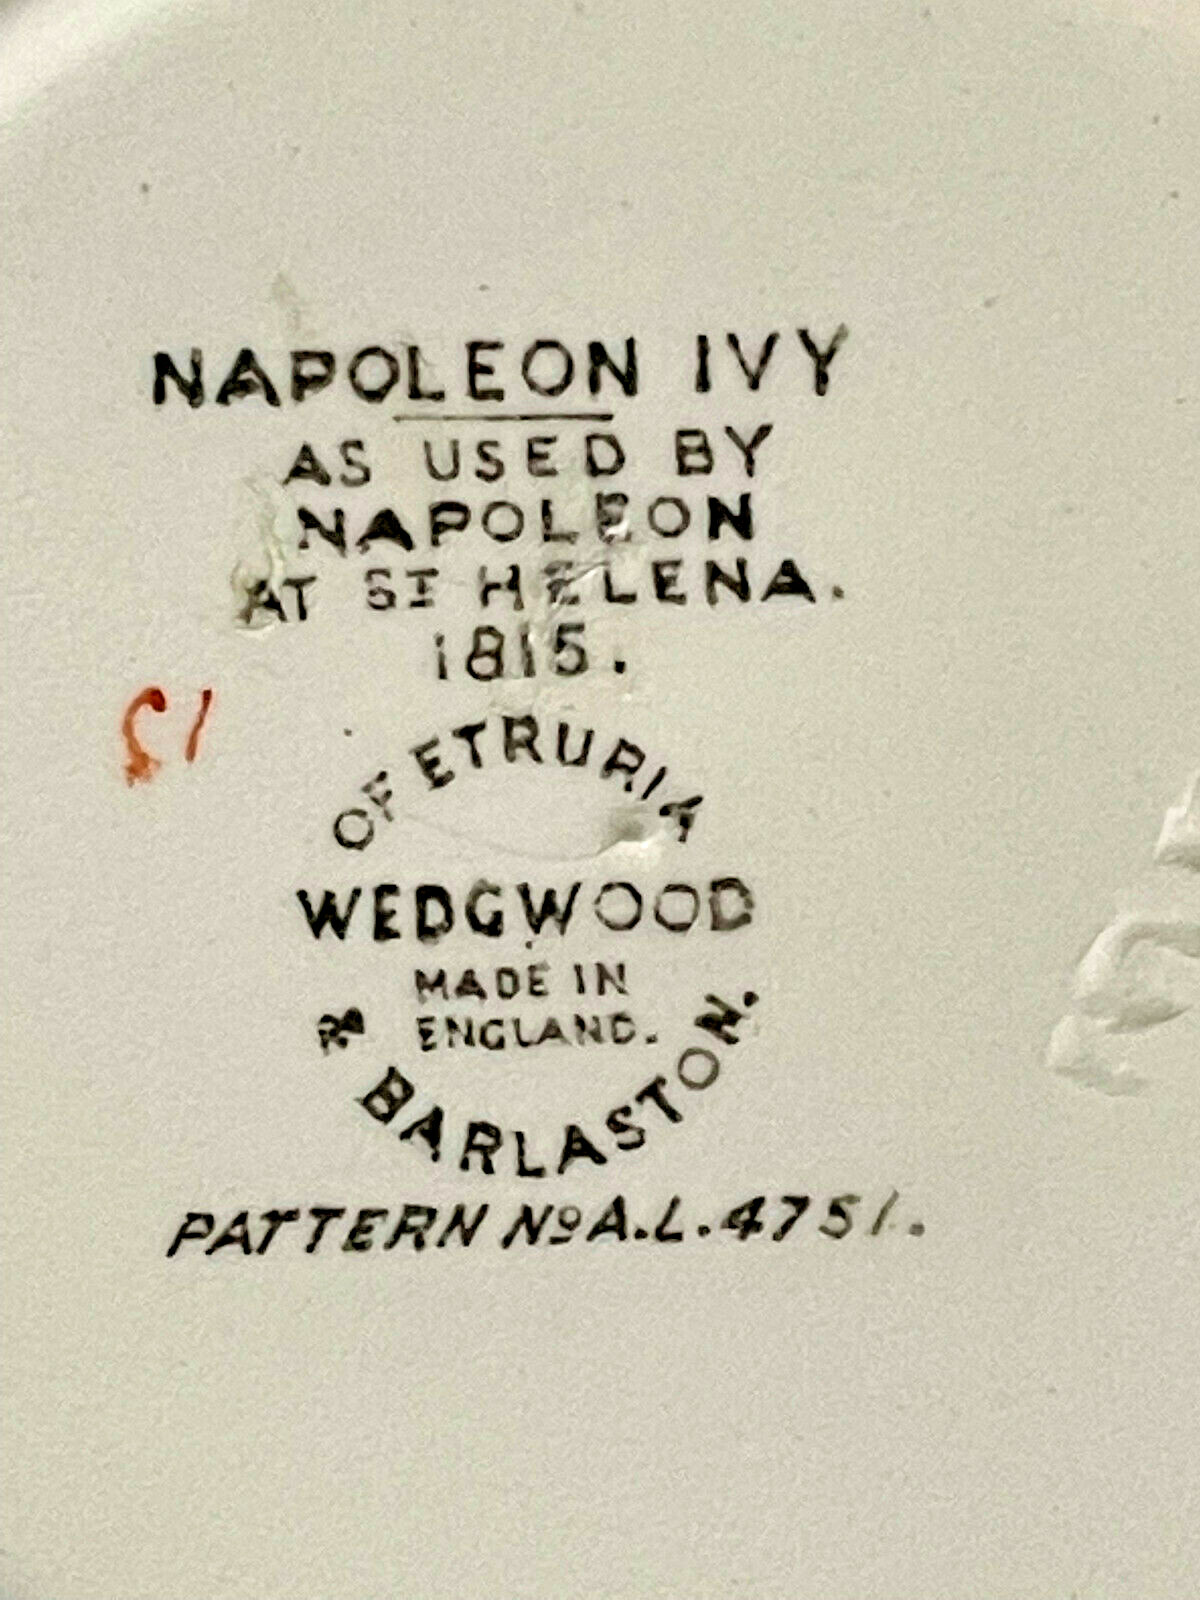 NAPOLEON IVY
AS USED BY
NAPOLEON
AT ST HELENA.
1815.
OF ETRURIA
WEDGWOOD
MADE IN
ENGLAND.
&
BARLASTON.
PATTERN No A.L.4751.